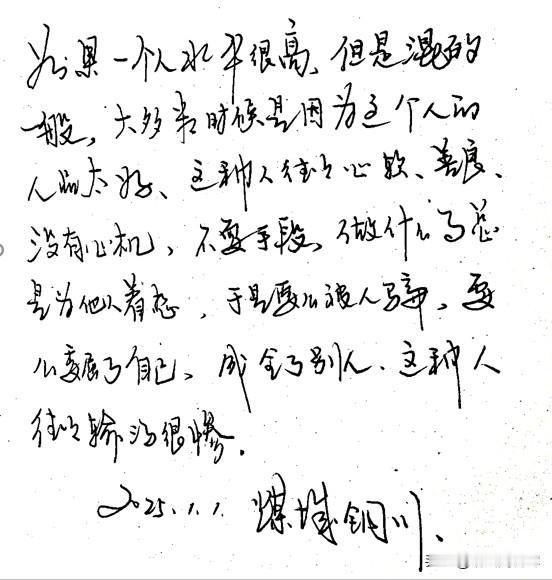 如果一个人水平很高、但是混的
一般，大多半时候是因为这个人的
人品太好、这种人往往心软、善良、
没有心机，不耍手段，做什么事总
是为他人着想，于是要么被人骗，要
么委屈了自己，成全了别人、这种人
往往输得很惨。
2025.1.1. 煤城铜川、